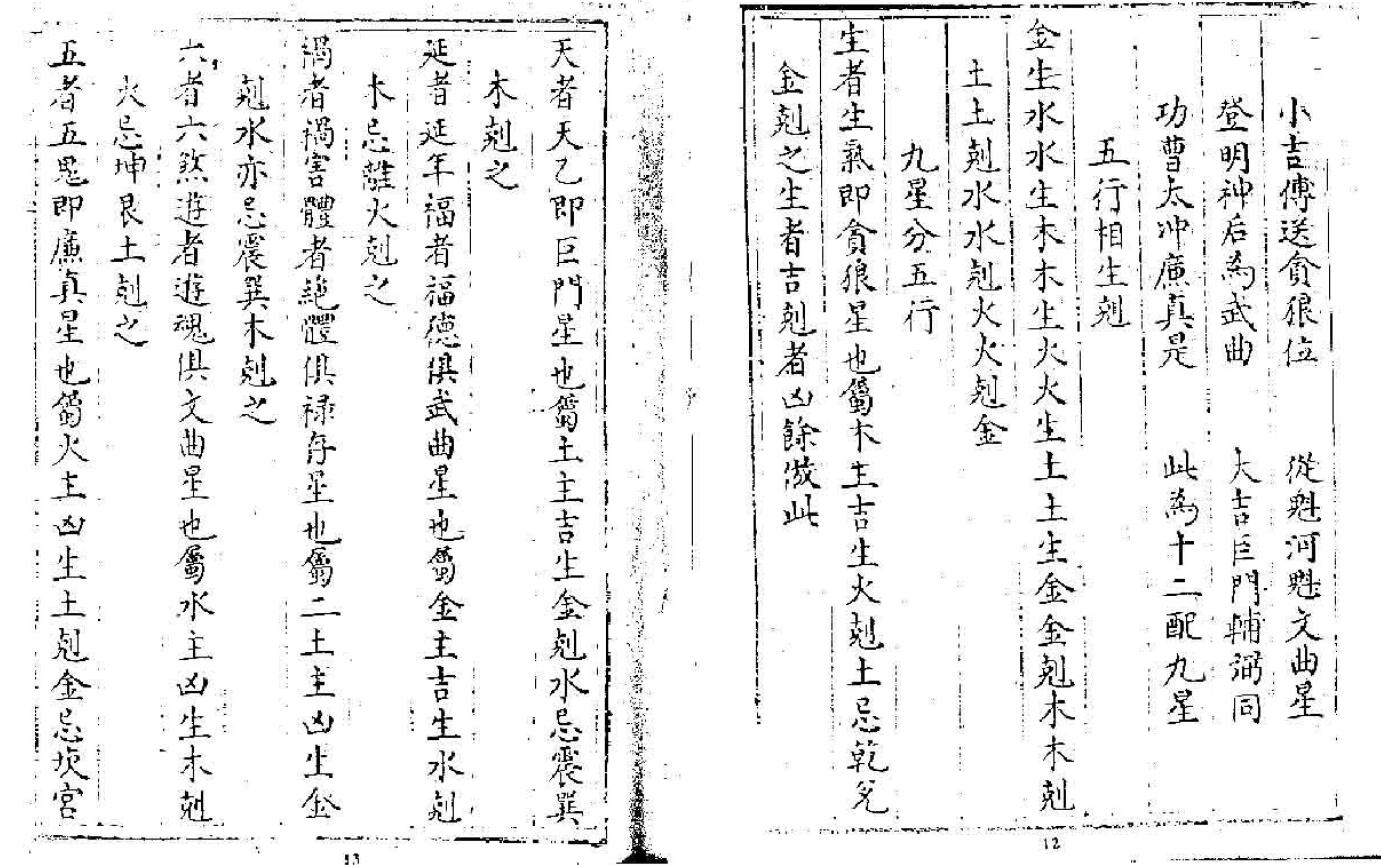 小吉傳送貪狼位　從魁河魁文曲星
登明神后為武曲　大吉巨門輔弼同
功曹太冲廉真是　此為十二配九星
五行相生剋
金生水水生木木生火火生土土生金金剋木木剋
土土剋水水剋火火剋金
九星分五行
生者生氣即貪狼星也屬木主吉生火剋土忌乾兌
金剋之生者吉剋者凶餘倣此
12
天者天乙即巨門星也屬土主吉生金剋水忌震巽
木剋之
延者延年福者福德俱武曲星也屬金主吉生水剋
木忌離火剋之
禍者禍害體者絶體俱禄存星也屬二土主凶生金
剋水亦忌震巽木剋之
六者六煞遊者遊魂俱文曲星也屬水主凶生木剋
火忌坤艮土剋之
五者五鬼即廉真星也屬火主凶生土剋金忌坎宮
13